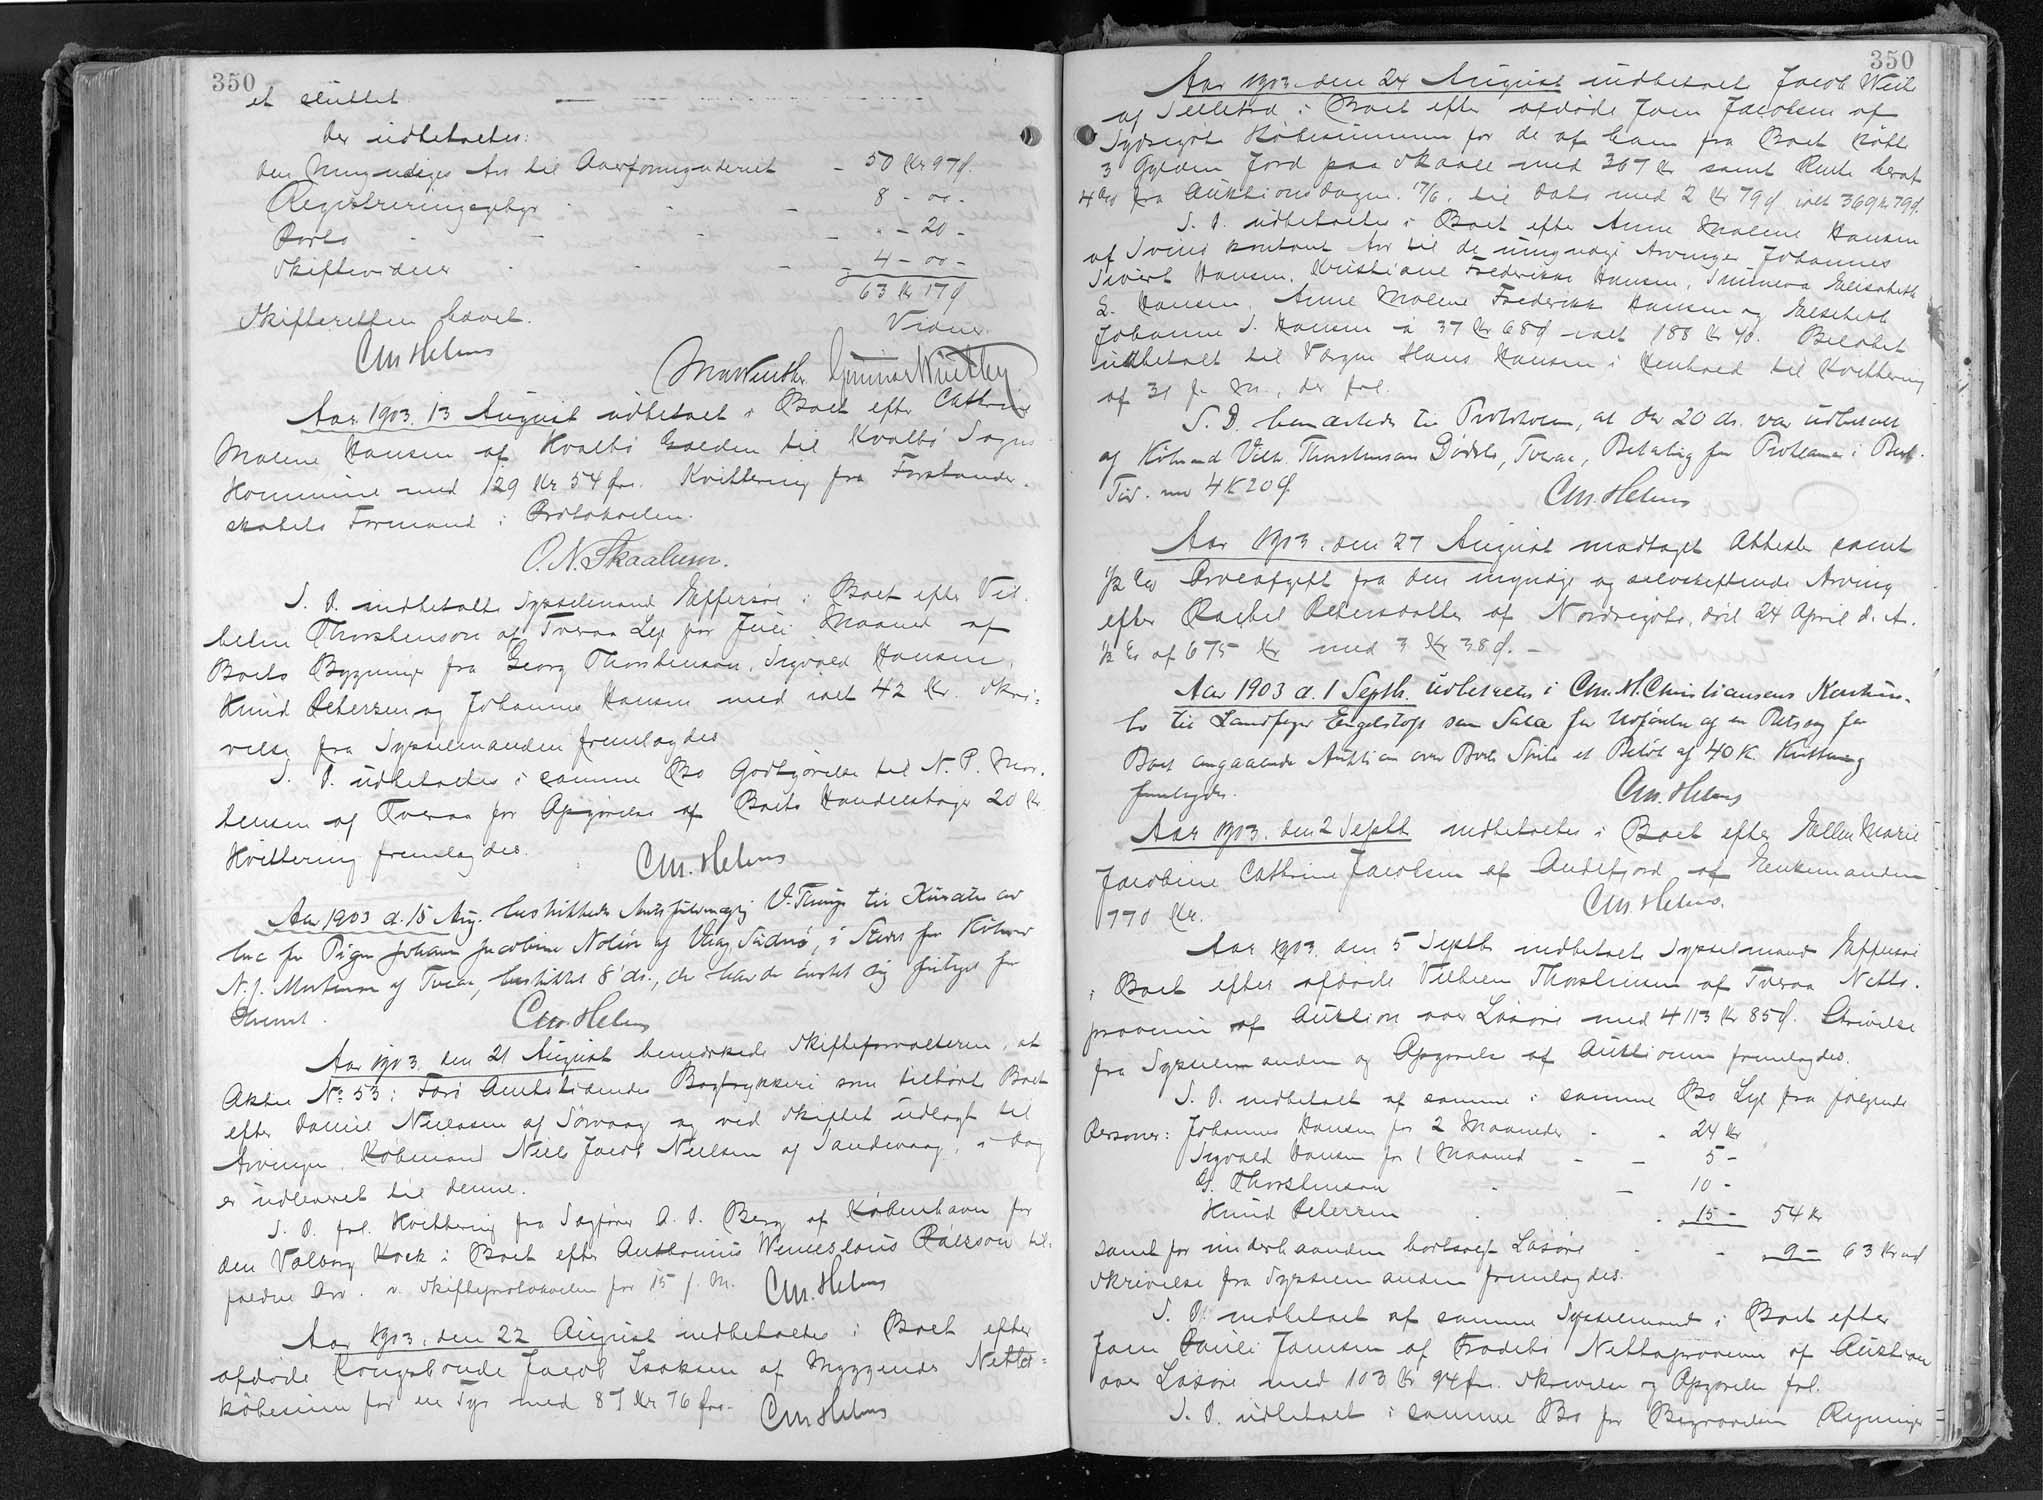 350
et sluttet.
Der udbetaltes:
den Umyndiges Arv til Overformynderiet - 50 Kr 97 Ø.
Registreringsgebyr - - - 8 - 00 -
Porto - - - - " - 20 -
Skiftevidner - - - - 4 - 00 -
63 Kr 17 Ø
Skifteretten hævet.
Vidner.
Chr. Helms
Aar 1903. 13 August udbetalt i Boet efter Cathrine
Malene Hansen af Kvalbø Gælden til Kvalbø Sogns
Kommune med 129 Kr 54 Øre. Kvittering fra Forstander-
skabets Formand i Protokollen.
O. N. Skaalum.
S. D. indbetalte Sysselmand Effersøe i Boet efter Vil-
helm Thorstensson af Tveraa Leje for Juli Maaned af
Boets Bygninger fra Georg Thorstensson, Sigvald Hansen,
Knud Petersen og Johannes Hansen med ialt 42 Kr. Skri-
velse fra Sysselmanden fremlagdes.
S. D. udbetaltes i samme Bo Godtgjørelse til N. P. Mor-
tensen af Tveraa for Opgørelse af Boets Handelsbøger 20 Kr
Kvittering fremlagdes.
Chr. Helms
Aar 1903 d. 15 Aug. beskikkedes Amtsfuldmægtig V. Thunge til Kurator ad
hoc for Pigen Johanne Jacobine Nolsøe af Vaag Suderø, i Stedet for Købmd
N. J. Mortensen af Tveraa, beskikket 8 ds., der havde ønsket sig fritaget for
Hvervet.
Chr. Helms
Aar 1903. den 21 August bemærkede Skifteforvalteren, at
Aktie No. 53 i Færø Amtstidendes Bogtrykkeri som tilhørte Boet
efter Daniel Nielsen af Sørvaag og ved Skiftet udlagt til
Arvingen, Købmand Niels Jacob Nielsen af Sandevaag, i Dag
er udleveret til denne.
S. D. frl. Kvittering fra Sagfører O. D. Berg af København for
den Valborg Hoek i Boet efter Anthonius Wenceslaus Poulsson til-
faldne Arv. v. Skifteprotokollen for 15 f. M.
Chr. Helms
Aar 1903. den 22 August indbetaltes i Boet efter
afdøde Kongsbonde Jacob Isaksen af Myggenæs Netto-
købesum for en Tyr med 87 Kr 76 Øre.
Chr. Helms
350
Aar 1903. den 24 August indbetalt Jacob Weihe
af Selletrad i Boet efter afdøde Joen Jacobsen af
Sydregøte Købesummen for de af ham fra Boet købte
3 Gylden Jord paa Skaale med 367 Kr samt Rente heraf
4 % fra Auktionsdagen 17/6. til Dato med 2 Kr 79 Ø ialt 369 Kr 79 Ø.
S. D. udbetaltes i Boet efter Anne Malene Hansen
af Svinø kontant Arv til de umyndige Arvinger Johannes
Sivert Hansen, Kristiane Frederikke Hansen, Sunneva Elisabeth
S. Hansen, Anne Malene Frederikke Hansen og Elsebeth
Johanne S. Hansen à 37 Kr 68 Ø ialt 188 Kr 40. Beløbet
udbetalt til Værgen Hans Hansen i Henhold til Kvittering
af 31 f. M., der frl.
S. D. bemærkedes til Protokollen, at der 20 ds. var udbetalt
af Købmd Vilh. Thorstensens Dødsbo, Tveraa, Betaling for Proklama i Berl.
Tid. med 4 K 20 Ø.
Chr. Helms
Aar 1903. den 27 August modtaget Attester samt
1/2 % Arveafgift fra den myndige og selvskiftende Arving
efter Rachel Petersdatter af Nordregøte, død 24 April d. A.
1/2 % af 675 Kr med 3 Kr 38 Ø. -
Aar 1903 d. 1 Septb. udbetaltes i Chr. M. Christiansens Konkurs-
bo til Landfoged Engelstoft som Salær for Udførelse af en Retssag for
Boet angaaende Auktion over Boets Skibe et Beløb af 40 K. Kvittering
fremlagdes.
Chr. Helms
Aar 1903. den 2 Septb indbetaltes i Boet efter Ellen Marie
Jacobine Cathrine Jacobsen af Andefjord af Enkemanden
770 Kr.
Chr. Helms.
Aar 1903. den 5 Septb indbetalte Sysselmand Effersøe
i Boet efter afdøde Vilhelm Thorstensen af Tveraa Netto-
provenu af Auktion over Løsøre med 4113 Kr 85 Ø. Skrivelse
fra Sysselmanden og Opgørelse af Auktionen fremlagdes.
S. D. indbetalt af samme i samme Bo Leje fra følgende
Personer: Johannes Hansen for 2 Maaneder - - 24 Kr
Sigvald Hansen for 1 Maaned - - 5 -
G. Thorstensson - - 10 -
Knud Petersen - - 15 - 54 Kr
samt for underhaanden bortsolgt Løsøre - - 9 - 63 Kr
Skrivelse fra Sysselmanden fremlagdes.
S. D. indbetalt af samme Sysselmand i Boet efter
Joen Pauli Joensen af Frodebø Nettoprovenu af Auktion
over Løsøre med 103 Kr 94 Øre. Skrivelse og Opgørelse frl.
S. D. udbetalt i samme Bo for Begravelsen Regninger